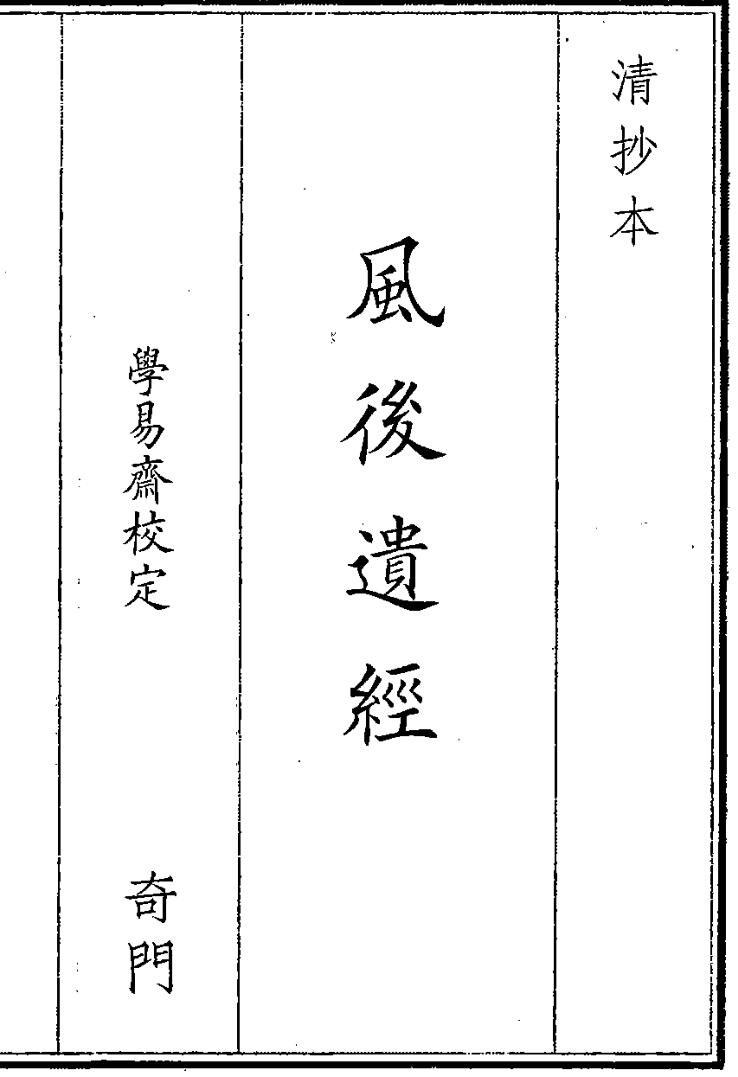 清抄本
風後遺經
學易齋校定
奇門